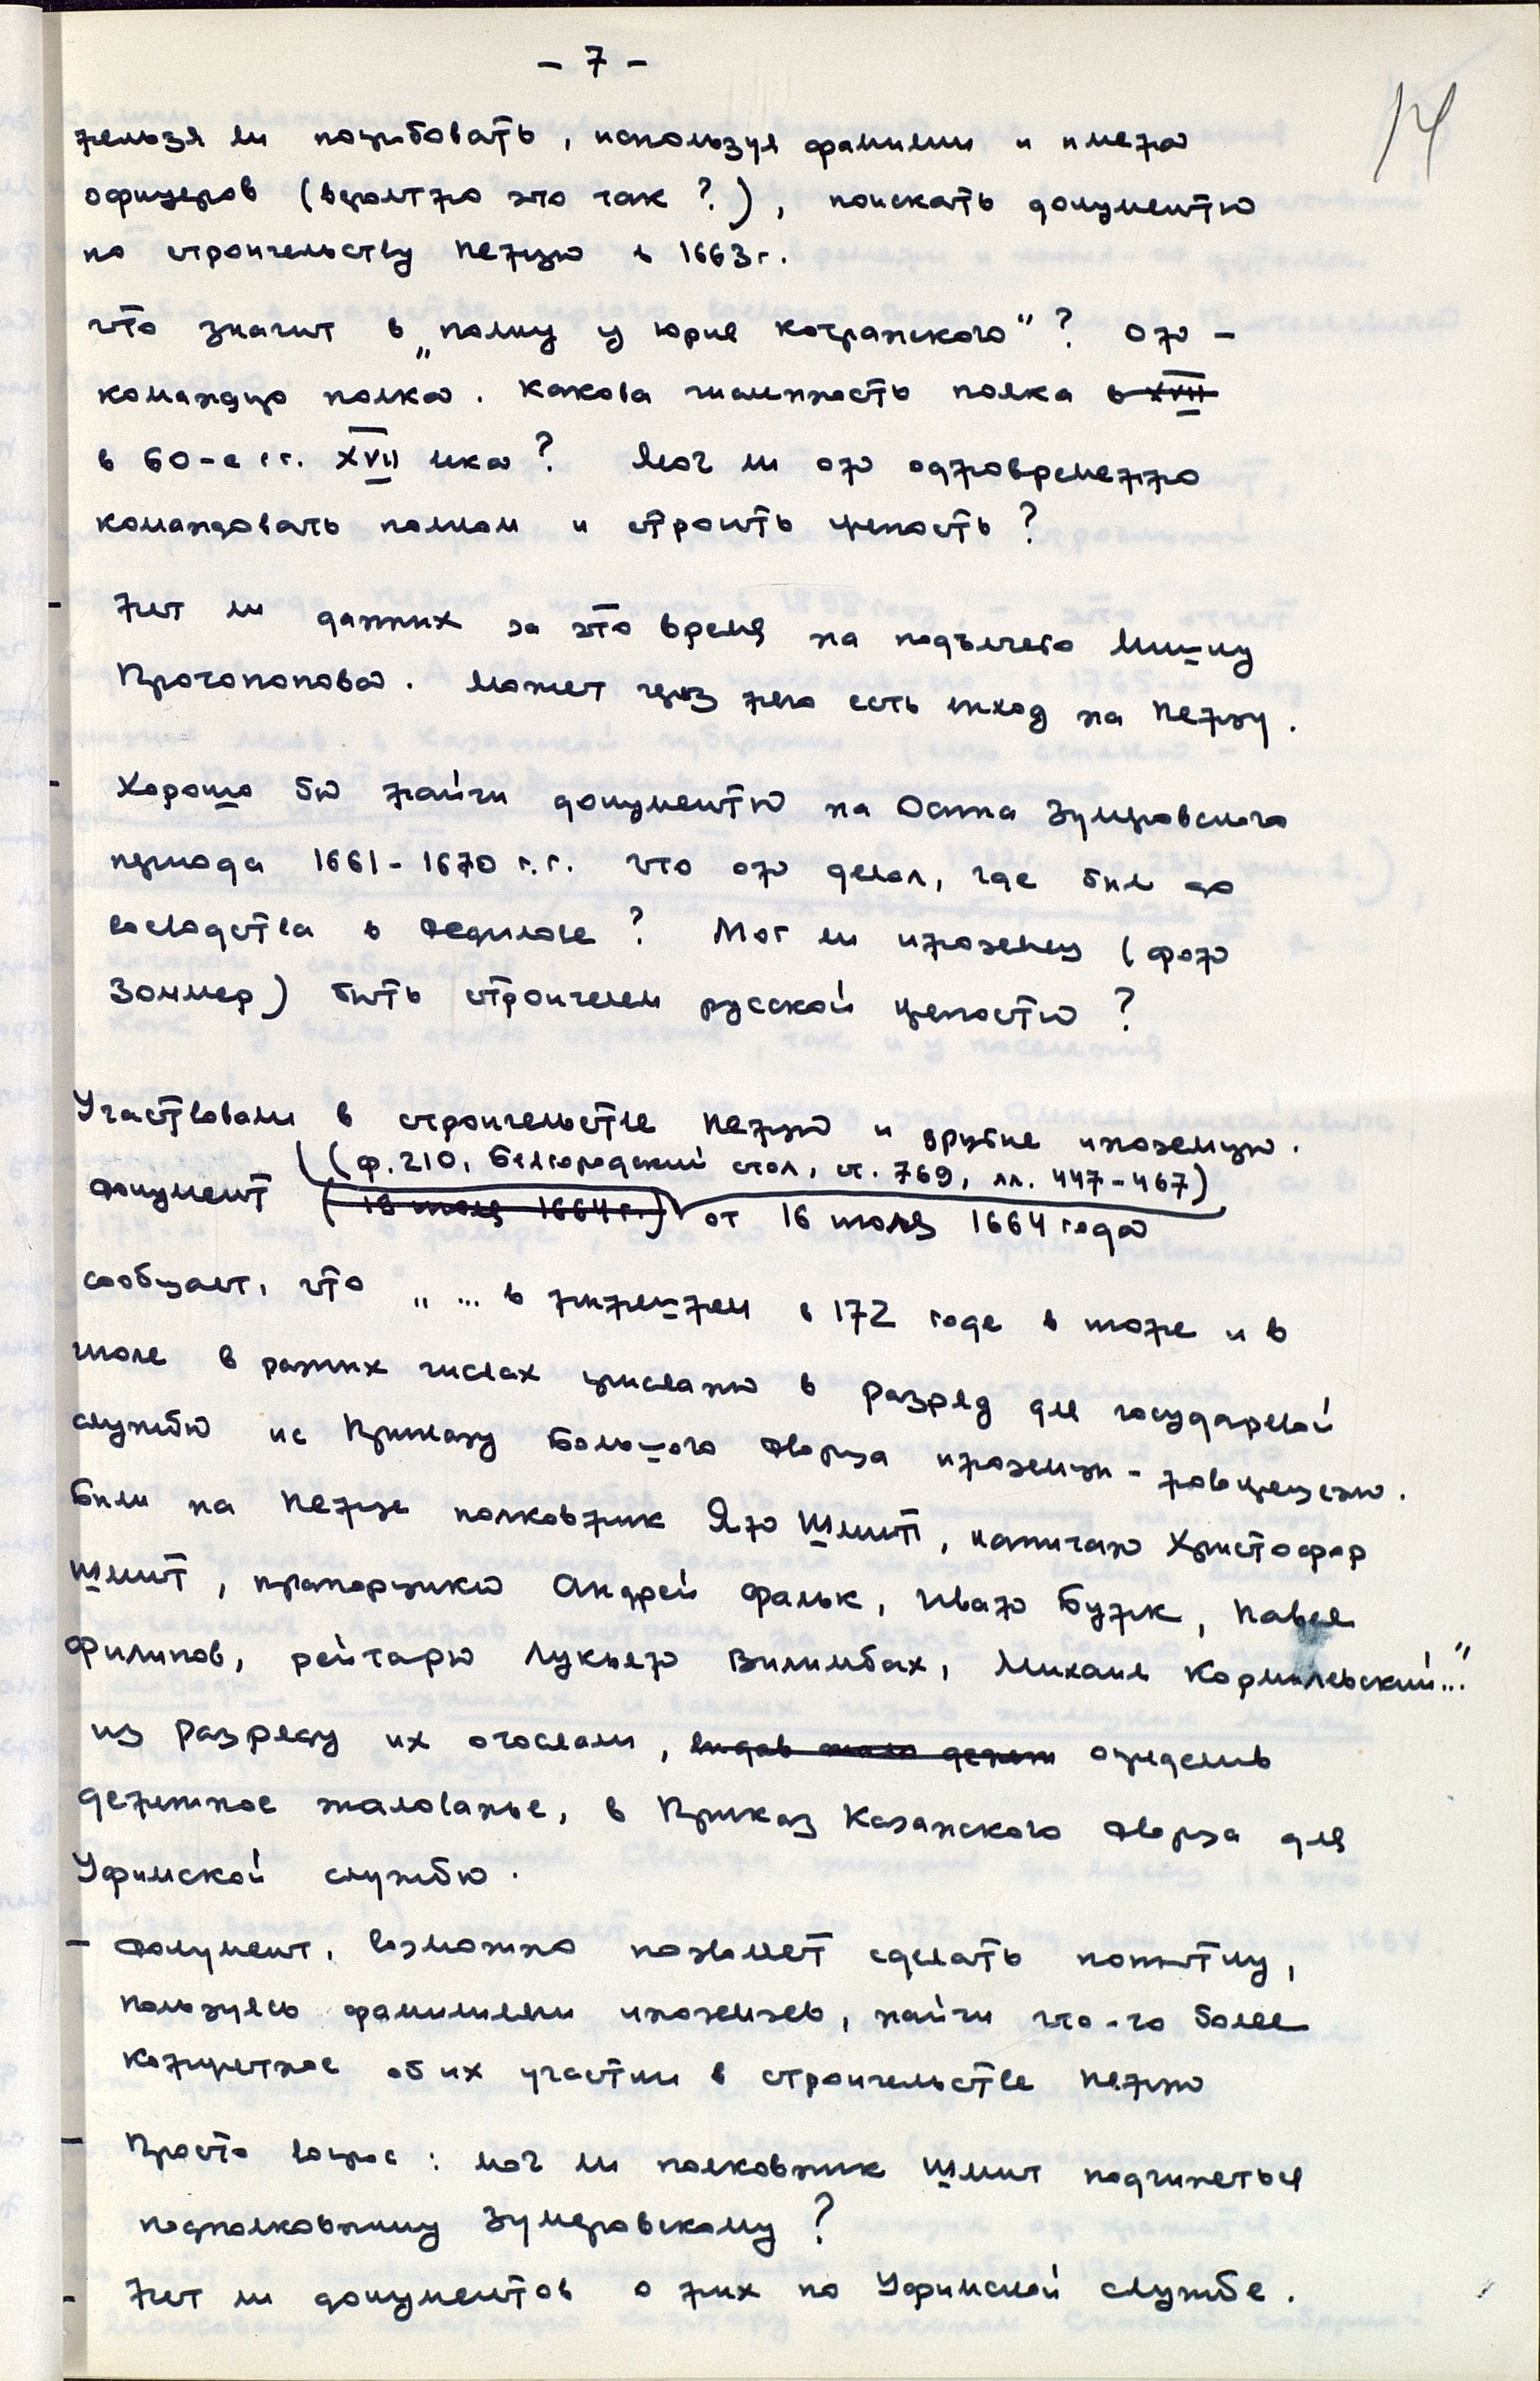 - 7 -
14
нельзя ли попробовать, используя фамилии и имена
офицеров (вероятно это так?), поискать документы
по строительству Пензы в 1663 г.
что значит в „полку у Юрия Контранского"? Он -
командир полка. Какова численность полка в XVII
в 60-е гг. XVII века? Мог ли он одновременно
командовать полком и строить крепость?
- Нет ли данных за это время на подъячего Мишку
Протопопова. Может через него есть выход на Пензу.
- Хорошо бы найти документы на Осипа Зумеровского
периода 1661-1670 г.г. Что он делал, где был до
воеводства в Дедилове? Мог ли иноземец (фон
Зоммер) быть строителем русской крепости?
Участвовали в строительстве Пензы и другие иноземцы.
(ф. 210, Белгородский стол, ст. 769, лл. 447-467)
Документ (18 июля 1664 г.) от 16 июля 1664 года
сообщает, что „... в нынешнем в 172 годе в июне и в
июле в разных числах присланы в разряд для государевой
службы ис Приказу Большого дворца иноземцы - новокрещены.
Были на Пензе полковник Ян Шмит, капитан Христофор
Шмит, прапорщики Андрей Фальк, Иван Бунк, Павел
Филипов, рейтары Лукьян Вилимбах, Михаил Кормилевский..."
из разряду их отослали, выдав мало денег определив
денежное жалованье, в Приказ Казанского дворца для
Уфимской службы.
- Документ, возможно позволяет сделать попытку,
пользуясь фамилиями иноземцев, найти что-то более
конкретное об их участии в строительстве Пензы
- Просто вопрос: мог ли полковник Шмит подчиняться
подполковнику Зумеровскому?
- Нет ли документов о них по Уфимской службе.